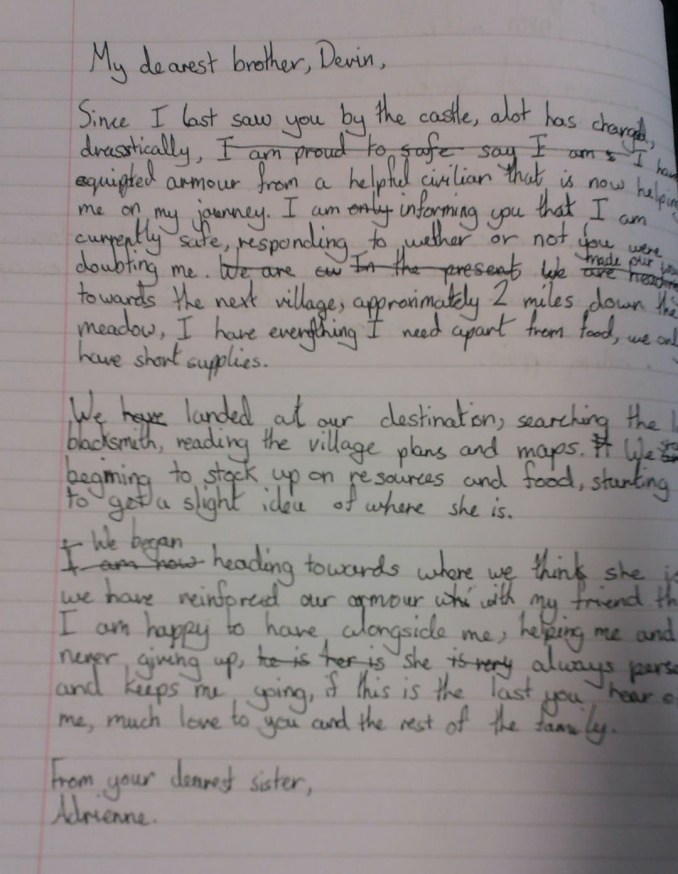 My dearest brother, Devin,
Since I last saw you by the castle, alot has changed,
drasstically, I am proud to safe say I am s I have
equipted armour from a helpful civilian that is now helping
me on my jounney. I am only informing you that I am
currently safe, responding to wether or not you were
doubting me. We are In the present We are heading made our
towards the next village, approximately 2 miles down the
meadow, I have everything I need apart from food, we only
have short supplies.
We have landed at our destination, searching the
blacksmith, reading the village plans and maps. It We
begining to stock up on resources and food, starting
to get a slight idea of where she is.
We began
I am now heading towards where we think she is
we have reinforced our armour whi with my friend
I am happy to have alongside me, helping me and
never giving up, he is her is she is very always
and keeps me going, if this is the last you hear
me, much love to you and the rest of the family.
From your dearest sister,
Adrienne.